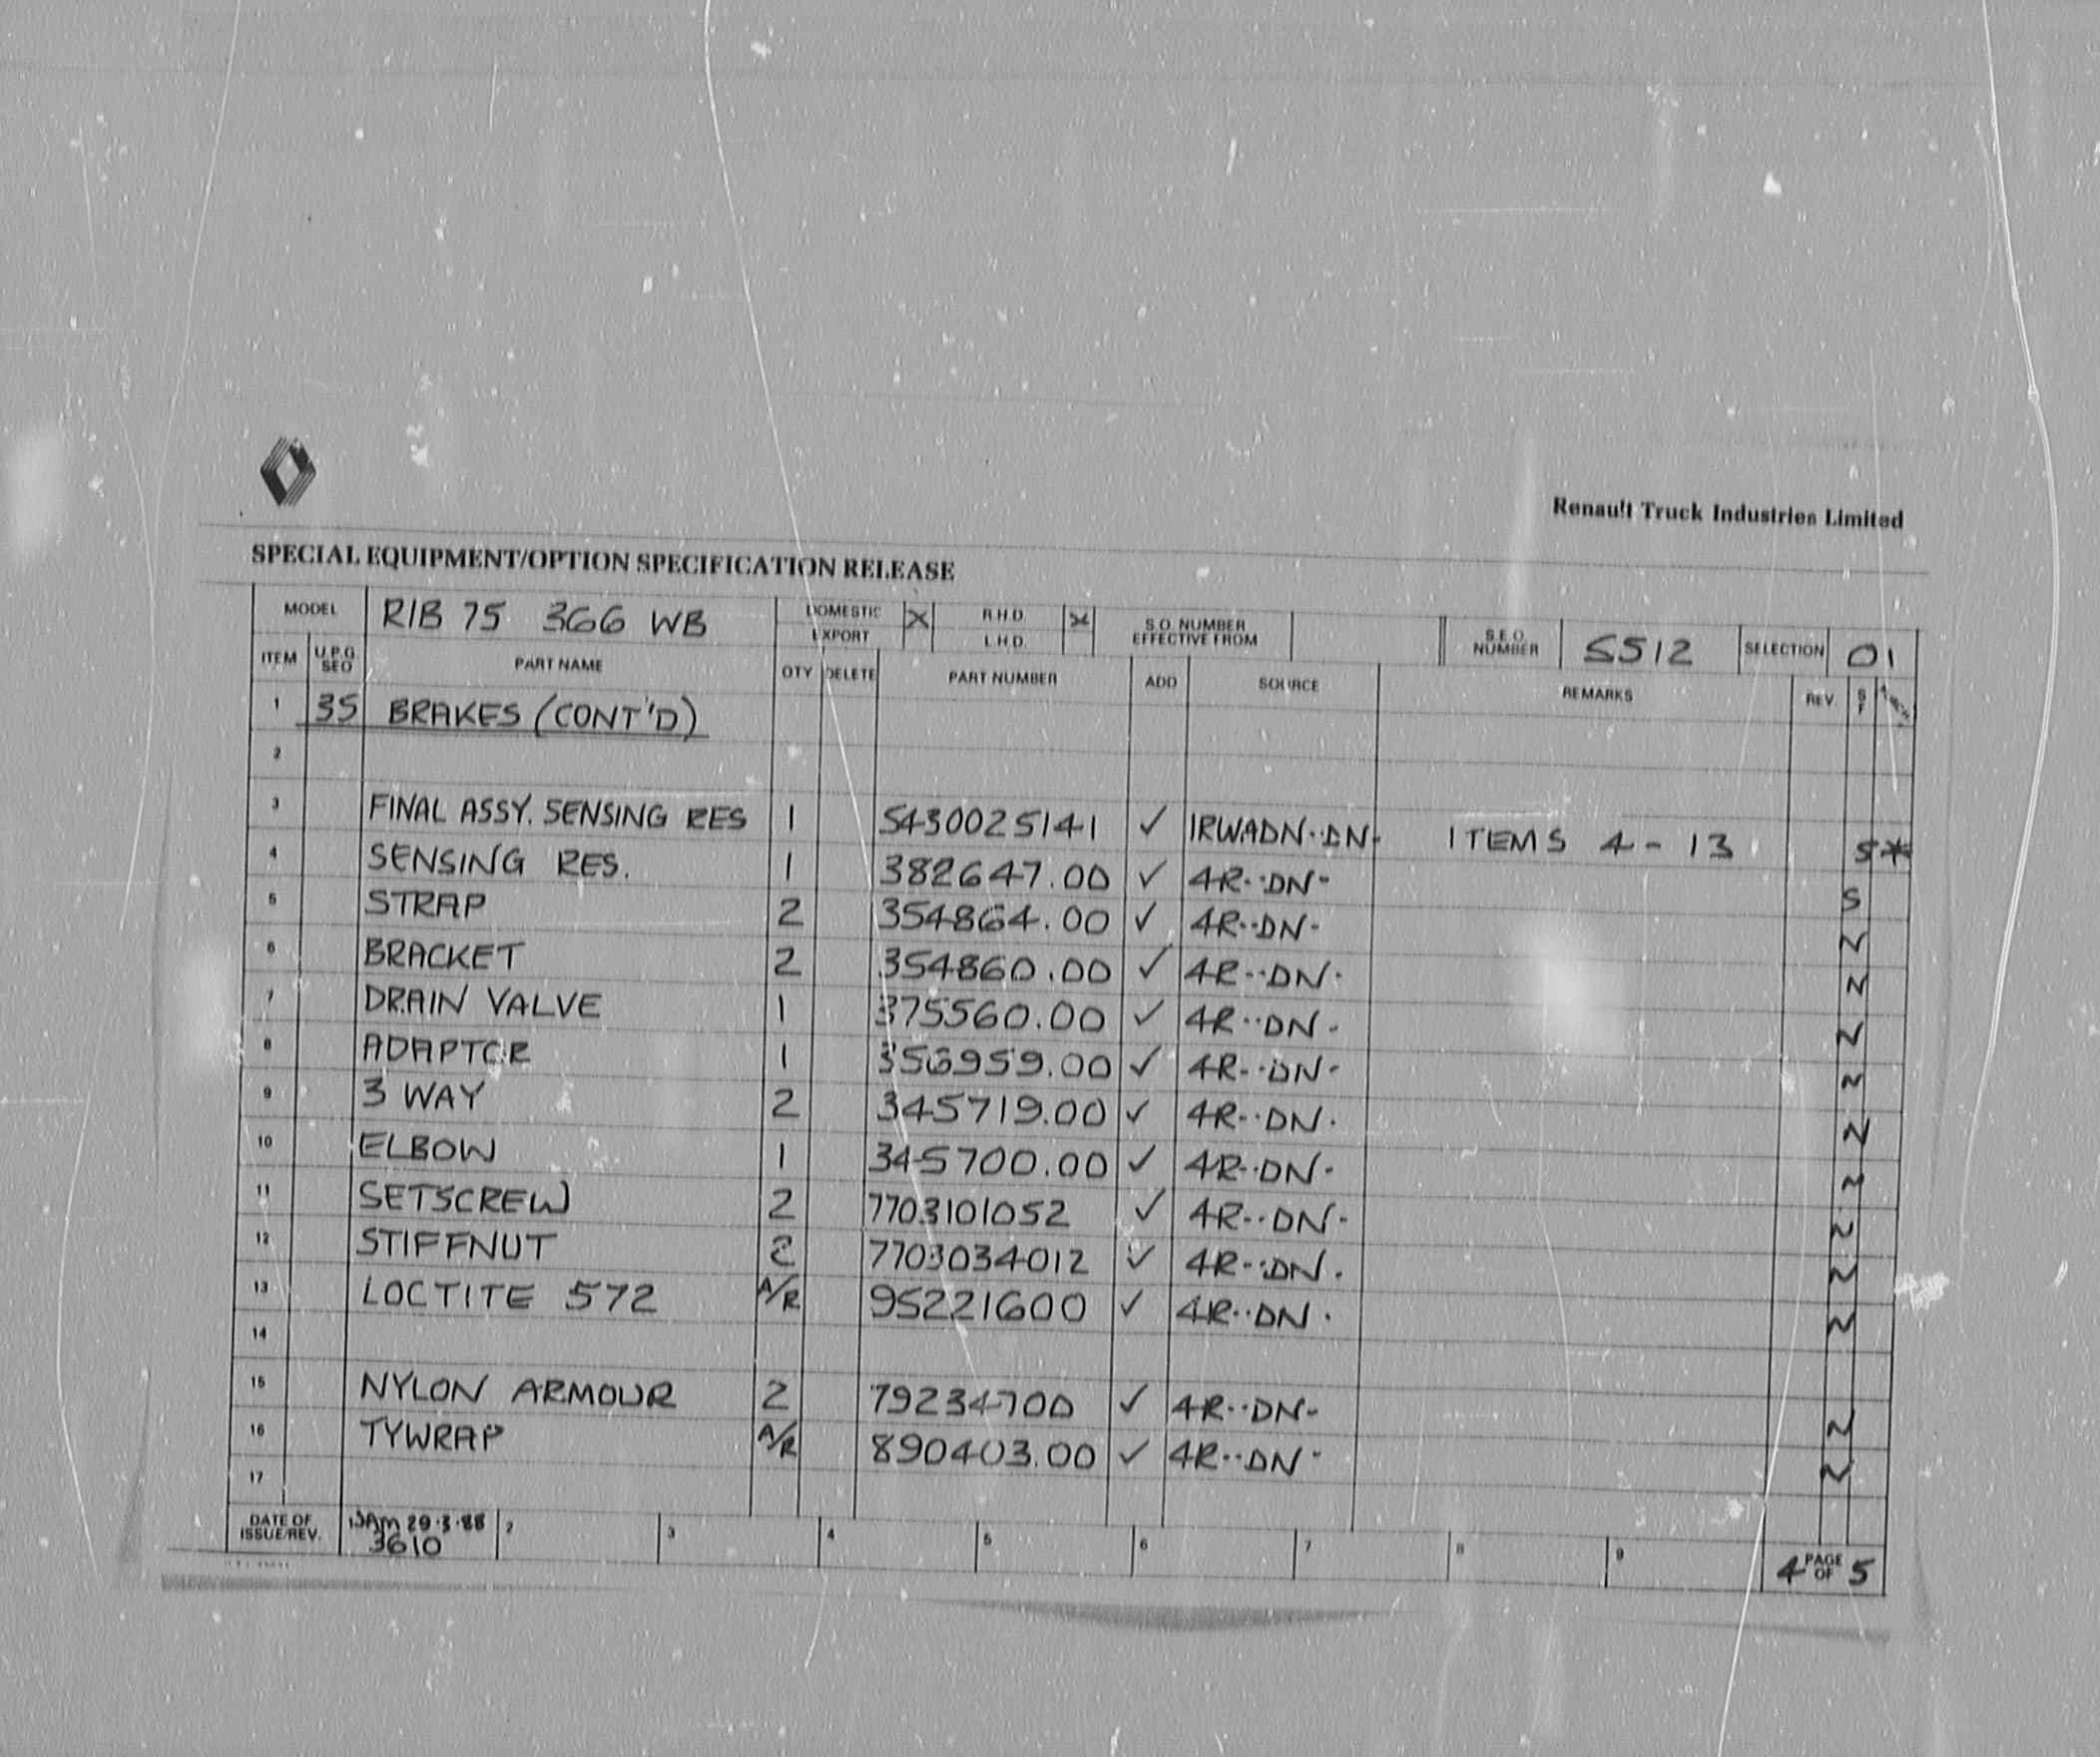 Renault Truck Industries Limited
SPECIAL EQUIPMENT/OPTION SPECIFICATION RELEASE
MODEL RIB 75 366 WB DOMESTIC X R.H.D. X S.O. NUMBER EFFECTIVE FROM S.E.O. NUMBER S512 SELECTION 01
EXPORT L.H.D.
ITEM U.P.G. SEO PART NAME QTY DELETE PART NUMBER ADD SOURCE REMARKS REV
1 35 BRAKES (CONT'D)
2
3 FINAL ASSY. SENSING RES 1 5430025141 ✓ 1RWADN··DN· ITEMS 4 - 13 S*
4 SENSING RES. 1 382647.00 ✓ 4R··DN- S
5 STRAP 2 354864.00 ✓ 4R··DN- N
6 BRACKET 2 354860.00 ✓ 4R··DN· N
7 DRAIN VALVE 1 375560.00 ✓ 4R··DN- N
8 ADAPTOR 1 356959.00 ✓ 4R··DN- N
9 3 WAY 2 345719.00 ✓ 4R··DN· N
10 ELBOW 1 345700.00 ✓ 4R··DN- N
11 SETSCREW 2 7703101052 ✓ 4R··DN- N
12 STIFFNUT 2 7703034012 ✓ 4R··DN. N
13 LOCTITE 572 A/R 95221600 ✓ 4R··DN · N
14
15 NYLON ARMOUR 2 79234700 ✓ 4R··DN- N
16 TYWRAP A/R 890403.00 ✓ 4R··DN- N
17
DATE OF ISSUE/REV. 29·3·88 2 3 4 5 6 7 8 9 4 PAGE OF 5
3610